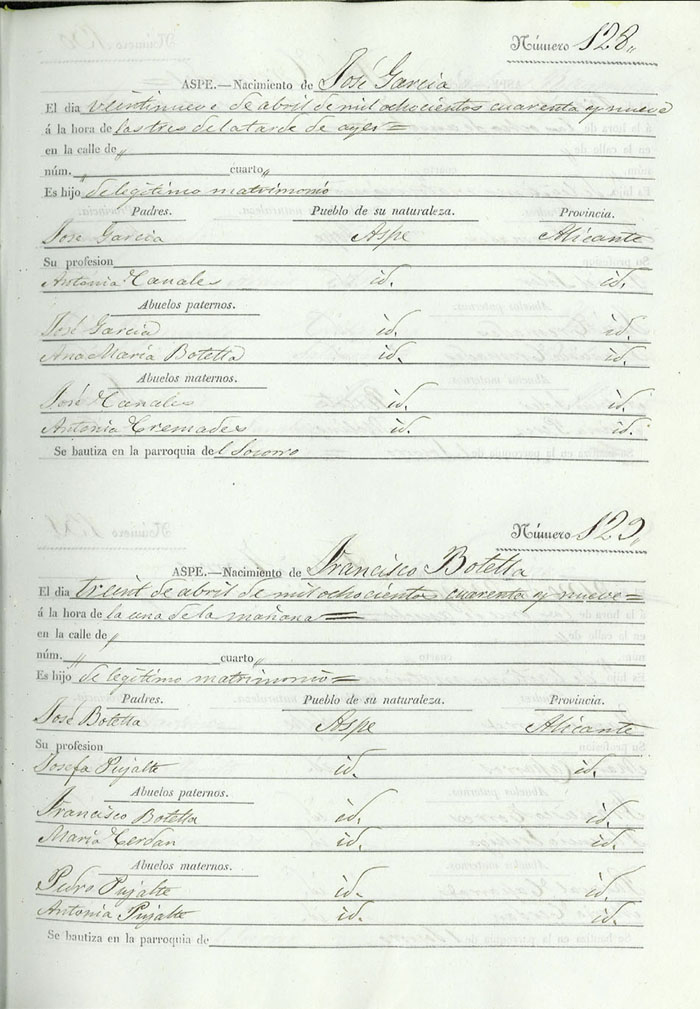 Número 128„
ASPE.—Nacimiento de José Garcia
El dia veintinueve de abril de mil ochocientos cuarenta y nueve
á la hora de las tres de la tarde de ayer=
en la calle de „
núm. „ cuarto „
Es hijo de legítimo matrimonio
Padres. Pueblo de su naturaleza. Provincia.
José Garcia Aspe Alicante
Su profesion
Antonia Canales id. id.
Abuelos paternos.
José Garcia id. id.
Ana Maria Botella id. id.
Abuelos maternos.
José Canales id. id.
Antonia Cremades id. id.
Se bautiza en la parroquia del Socorro
Número 129„
ASPE.—Nacimiento de Francisco Botella
El dia treint de abril de mil ochocientos cuarenta y nueve=
á la hora de la una de la mañana=
en la calle de „
núm. „ cuarto „
Es hijo de legítimo matrimonio=
Padres. Pueblo de su naturaleza. Provincia.
José Botella Aspe Alicante
Su profesion
Josefa Pujalte id. id.
Abuelos paternos.
Francisco Botella id. id.
Maria Cerdan id. id.
Abuelos maternos.
Pedro Pujalte id. id.
Antonia Pujalte id. id.
Se bautiza en la parroquia de